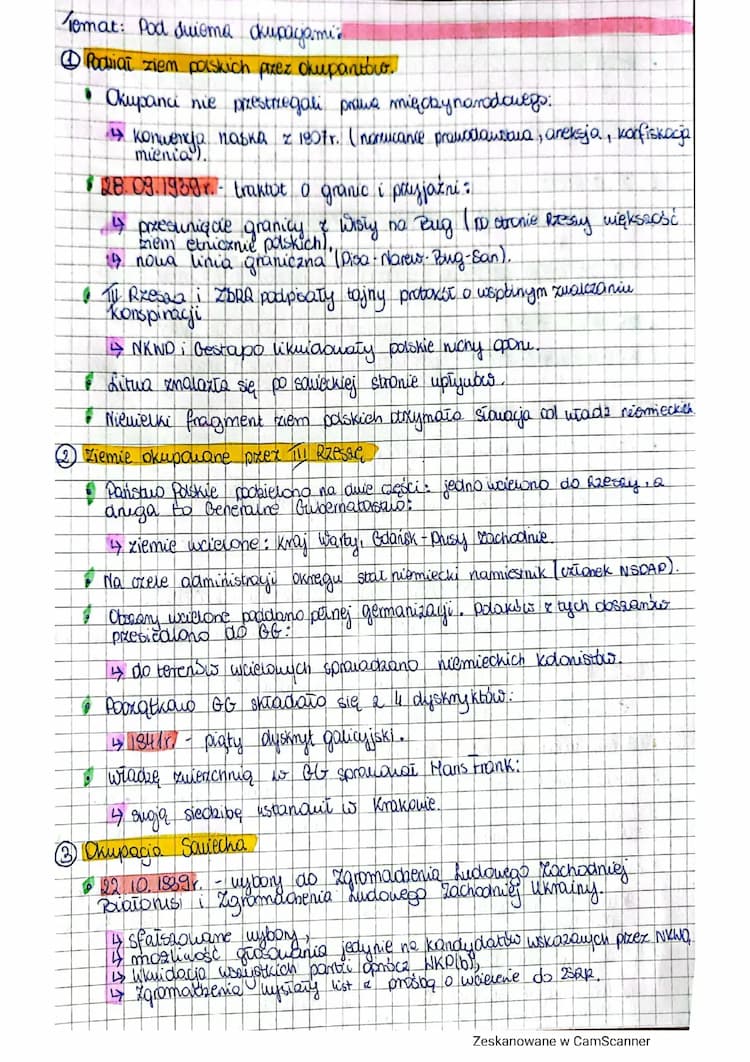 Temat: Pod dwiema okupacjami.
① Podział ziem polskich przez okupantów.
Okupanci nie przestrzegali prawa międzynarodowego:
↳ konwencja haska z 1907r. (narzucanie prawodawstwa, aneksja, konfiskacja
mienia).
28.09.1939r. - traktat o granic i przyjaźni:
↳ przesunięcie granicy z Wisły na Bug (po stronie Rzeszy większość
ziem etnicznie polskich),
↳ nowa linia graniczna (Pisa-Narew-Bug-San).
III Rzesza i ZSRR podpisały tajny protokół o wspólnym zwalczaniu
konspiracji
↳ NKWD i Gestapo likwidowały polskie ruchy oporu.
Litwa znalazła się po sowieckiej stronie wpływów.
Niewielki fragment ziem polskich otrzymała Słowacja od władz niemieckich
② Ziemie okupowane przez III Rzeszę
Państwo Polskie podzielono na dwie części: jedno wcielono do Rzeszy, a
druga to Generalne Gubernatorstwo:
↳ ziemie wcielone: Kraj Warty, Gdańsk-Prusy Zachodnie.
Na czele administracji okręgu stał niemiecki namiestnik (członek NSDAP).
Obszary wcielone poddano pełnej germanizacji. Polaków z tych obszarów
przesiedlono do GG:
↳ do terenów wcielonych sprowadzano niemieckich kolonistów.
Początkowo GG składało się z 4 dystryktów:
↳ 1941r. - piąty dystrykt galicyjski.
władzę zwierzchnią w GG sprawował Hans Frank:
↳ swoją siedzibę ustanowił w Krakowie.
③ Okupacja Sowiecka
22.10.1939r. - wybory do Zgromadzenia Ludowego Zachodniej
Białorusi i Zgromadzenia Ludowego Zachodniej Ukrainy.
↳ sfałszowane wybory,
↳ możliwość głosowania jedynie na kandydatów wskazanych przez NKWD,
↳ likwidacja wszystkich partii oprócz WKP(b),
↳ Zgromadzenia wysłały list z prośbą o wcielenie do ZSRR.
Zeskanowane w CamScanner